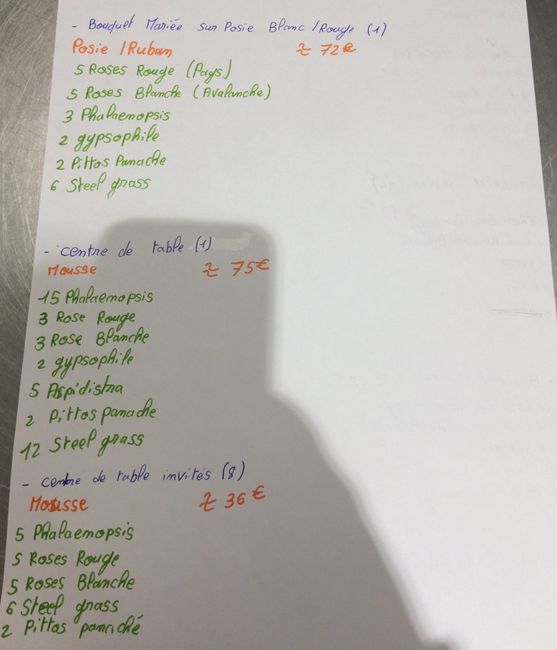 - Bouquet Mariée sur Posie Blanc / Rouge (1)
Posie / Ruban ≈ 72€
5 Roses Rouge (Pays)
5 Roses Blanche (Avalanche)
3 Phalaemopsis
2 gypsophile
2 Pittos Panache
6 Steel grass
- centre de table (1)
Mousse ≈ 75€
15 Phalaemopsis
3 Rose Rouge
3 Rose Blanche
2 gypsophile
5 Aspidistra
2 Pittos panache
12 Steel grass
- centre de table invités (8)
Mousse ≈ 36€
5 Phalaemopsis
5 Roses Rouge
5 Roses Blanche
6 Steel grass
2 Pittos panaché